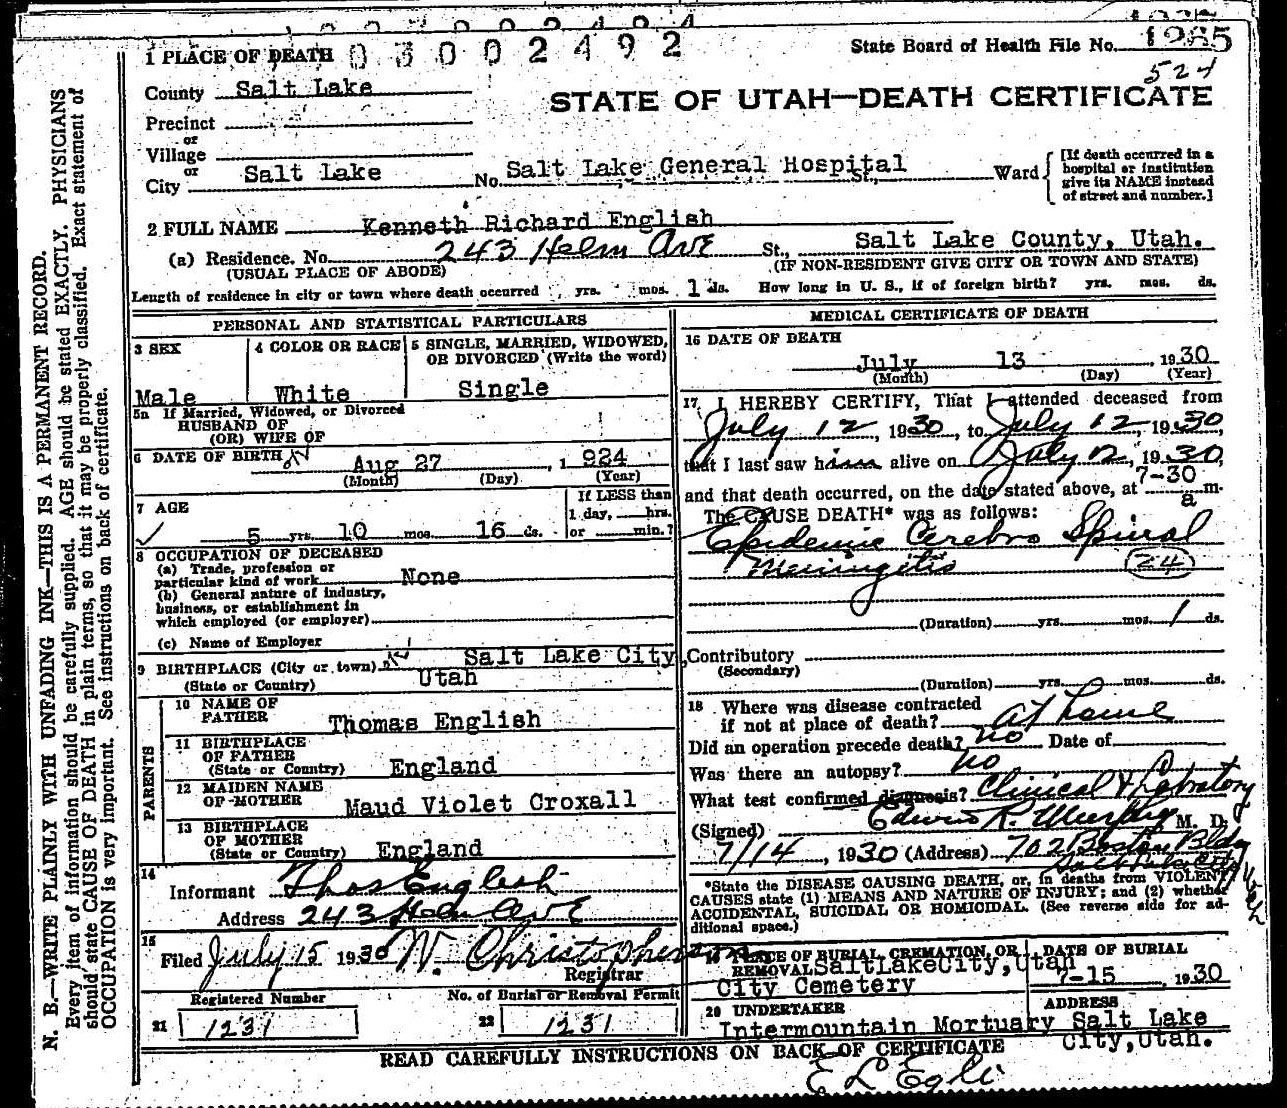 03002492
State Board of Health File No. 1265
524
1 PLACE OF DEATH
County Salt Lake
STATE OF UTAH—DEATH CERTIFICATE
Precinct
or
Village
or
City Salt Lake No. Salt Lake General Hospital St., Ward
[If death occurred in a
hospital or institution
give its NAME instead
of street and number.]
2 FULL NAME Kenneth Richard English
(a) Residence. No. 243 Helm Ave St., Salt Lake County, Utah.
(USUAL PLACE OF ABODE) (IF NON-RESIDENT GIVE CITY OR TOWN AND STATE)
Length of residence in city or town where death occurred yrs. mos. 1 ds. How long in U. S., if of foreign birth? yrs. mos. ds.
PERSONAL AND STATISTICAL PARTICULARS
3 SEX
Male
4 COLOR OR RACE
White
5 SINGLE, MARRIED, WIDOWED,
OR DIVORCED (Write the word)
Single
5a If Married, Widowed, or Divorced
HUSBAND OF
(OR) WIFE OF
6 DATE OF BIRTH Aug 27, 1924
(Month) (Day) (Year)
7 AGE
5 yrs. 10 mos. 16 ds.
If LESS than
1 day, hrs.
or min.?
8 OCCUPATION OF DECEASED
(a) Trade, profession or
particular kind of work None
(b) General nature of industry,
business, or establishment in
which employed (or employer)
(c) Name of Employer
9 BIRTHPLACE (City or town) Salt Lake City,
(State or Country) Utah
PARENTS
10 NAME OF
FATHER Thomas English
11 BIRTHPLACE
OF FATHER
(State or Country) England
12 MAIDEN NAME
OF MOTHER Maud Violet Croxall
13 BIRTHPLACE
OF MOTHER
(State or Country) England
14
Informant Thos English
Address 243 Helm Ave
15
Filed July 15 1930 W. Christopherson
Registrar
Registered Number
21 1231
No. of Burial or Removal Permit
22 1231
MEDICAL CERTIFICATE OF DEATH
16 DATE OF DEATH
July 13 1930
(Month) (Day) (Year)
17 I HEREBY CERTIFY, That I attended deceased from
July 12, 1930, to July 12, 1930
that I last saw him alive on July 12, 1930,
and that death occurred, on the date stated above, at 7-30 a m.
The CAUSE DEATH* was as follows:
Epidemic Cerebro Spinal
Meningitis 24
(Duration) yrs. mos. 1 ds.
Contributory
(Secondary)
(Duration) yrs. mos. ds.
18 Where was disease contracted
if not at place of death? At home
Did an operation precede death? no Date of
Was there an autopsy? no
What test confirmed diagnosis? Clinical & Labratory
(Signed) Edwin R. Murphy M. D.
7/14, 1930 (Address) 702 Boston Bldg
Salt Lake City
*State the DISEASE CAUSING DEATH, or, in deaths from VIOLENT
CAUSES state (1) MEANS AND NATURE OF INJURY; and (2) whether
ACCIDENTAL, SUICIDAL OR HOMICIDAL. (See reverse side for ad-
ditional space.)
19 PLACE OF BURIAL, CREMATION, OR
REMOVAL Salt Lake City, Utah
City Cemetery
DATE OF BURIAL
7-15 1930
20 UNDERTAKER
Intermountain Mortuary
ADDRESS
Salt Lake
City, Utah.
READ CAREFULLY INSTRUCTIONS ON BACK OF CERTIFICATE
E L Egli
N. B.—WRITE PLAINLY WITH UNFADING INK—THIS IS A PERMANENT RECORD.
Every item of information should be carefully supplied. AGE should be stated EXACTLY. PHYSICIANS
should state CAUSE OF DEATH in plain terms, so that it may be properly classified. Exact statement of
OCCUPATION is very important. See instructions on back of certificate.